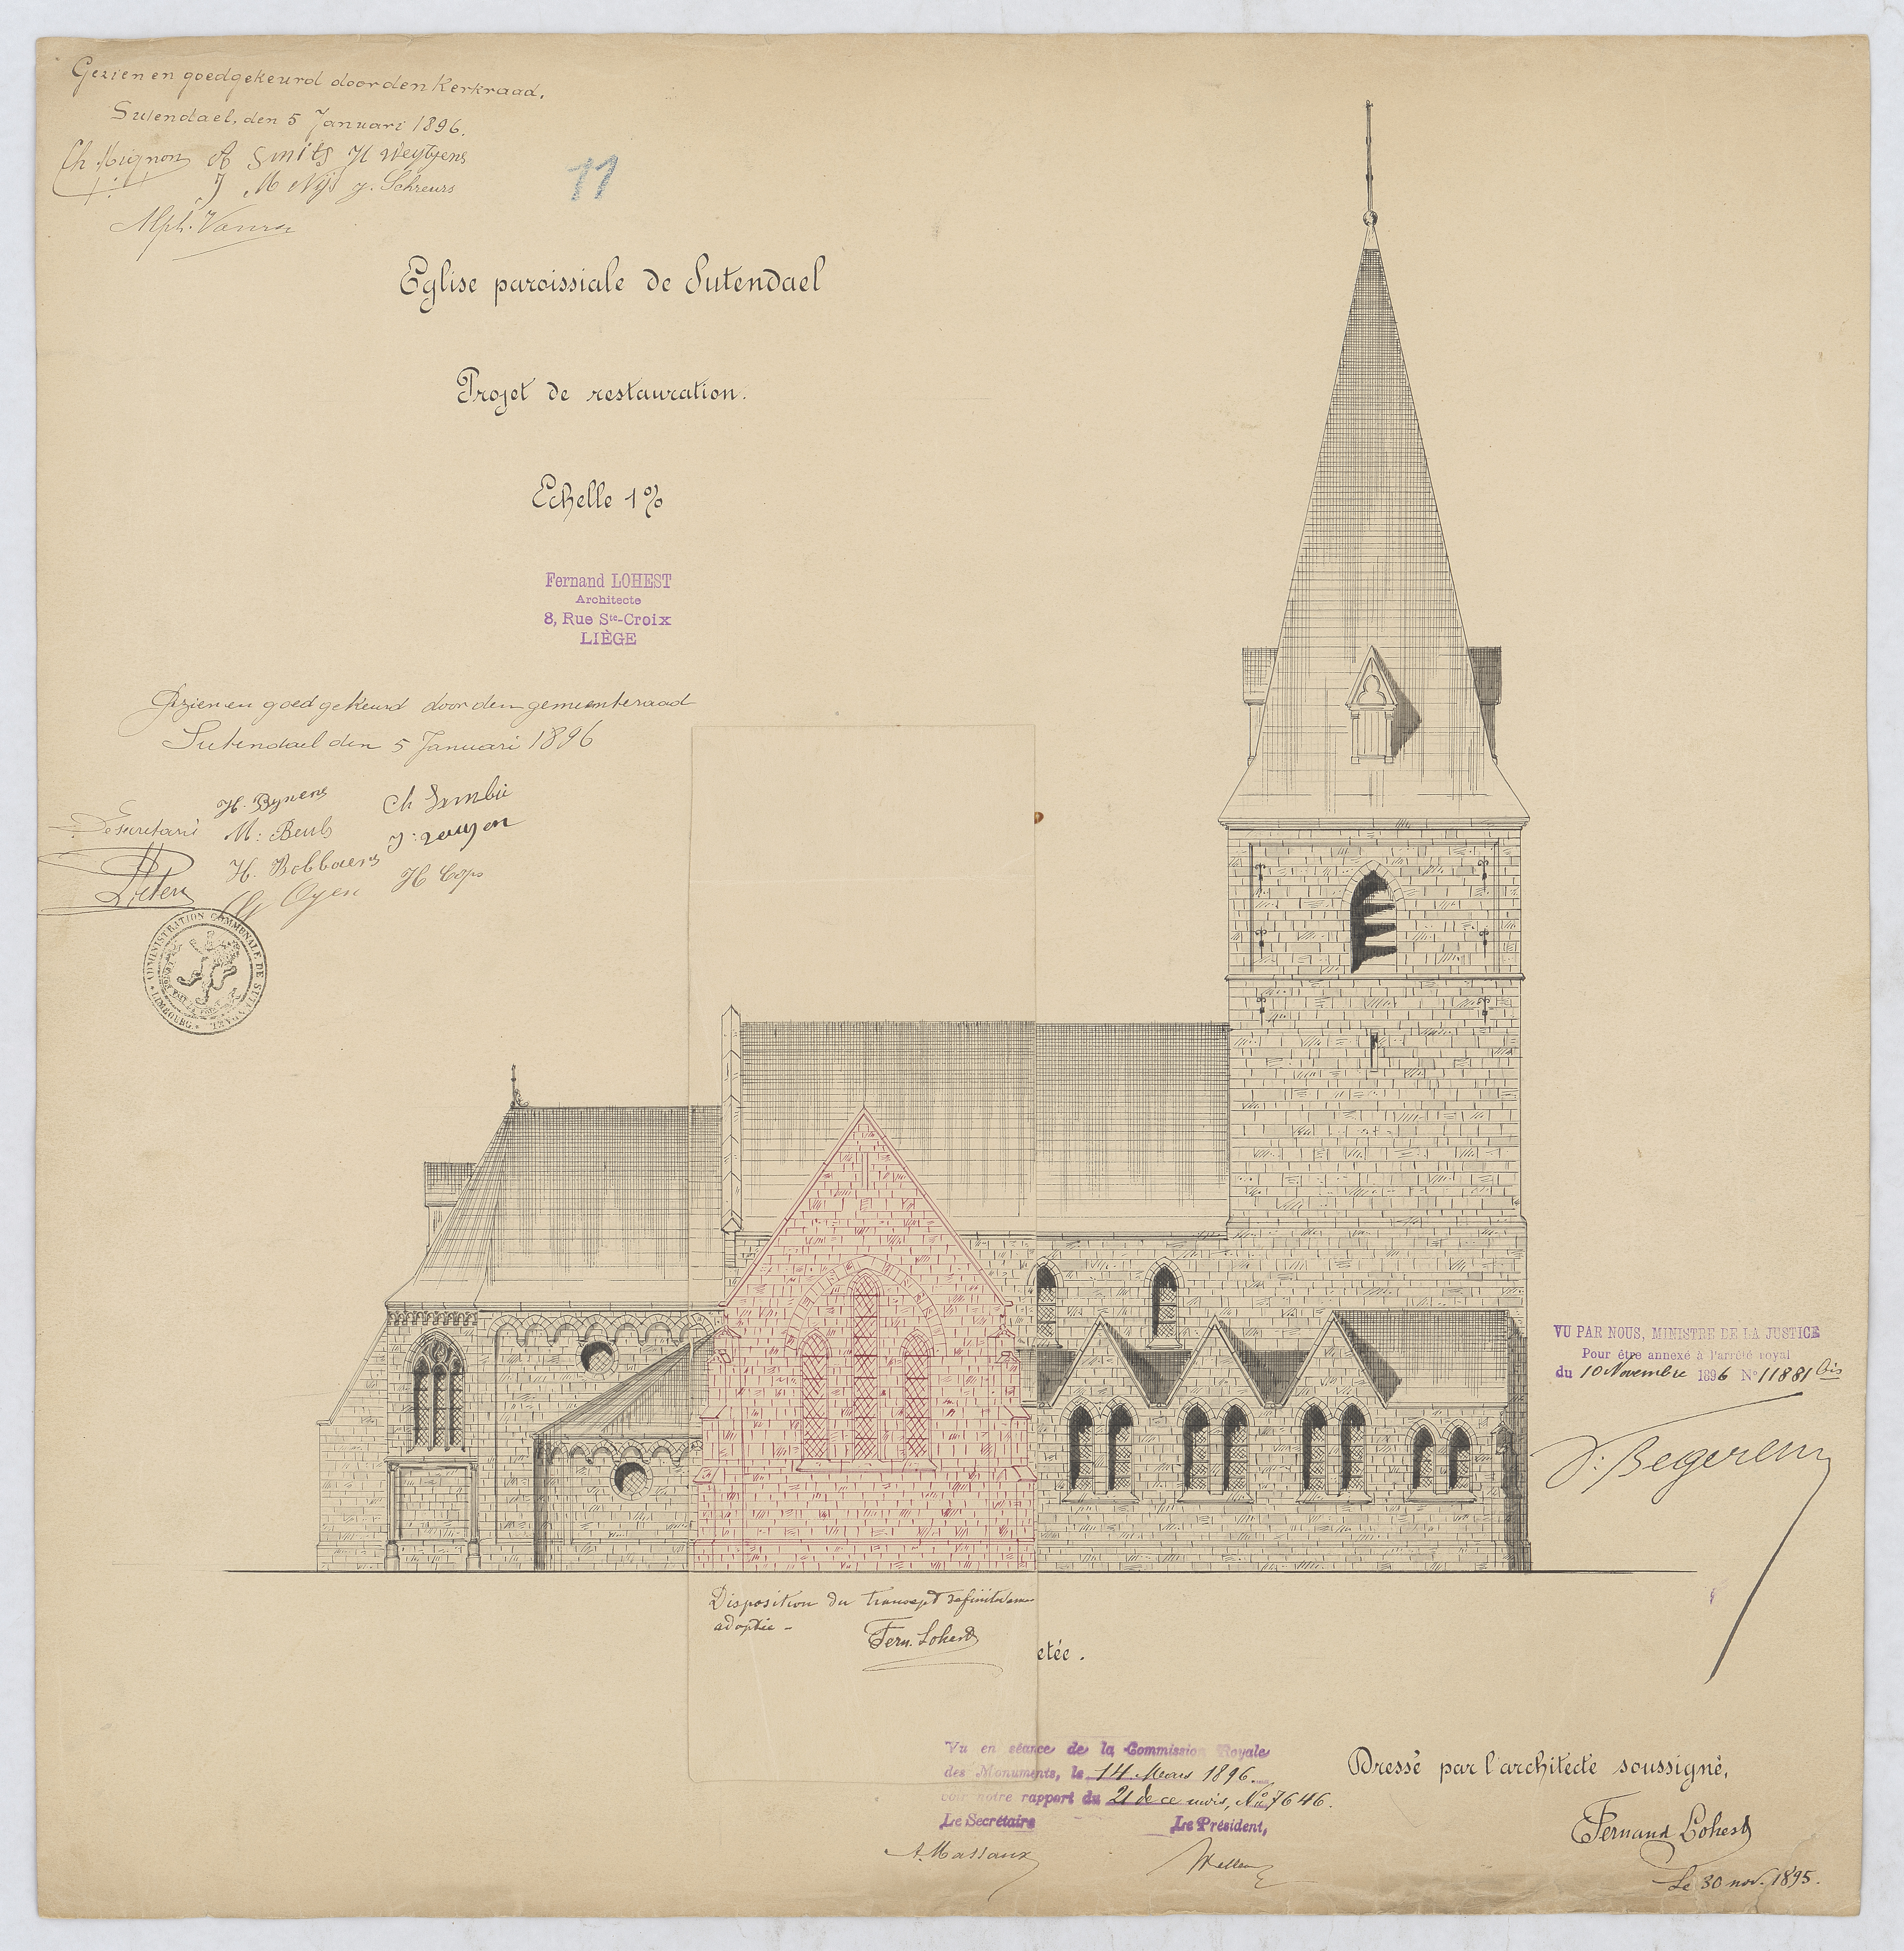 Gezien en goedgekeurd door den Kerkraad.
Sutendael, den 5 Januari 1896.
Ch Mignon A Smits H Weytjens
J M Nijs J. Schreurs
Alph.
11
Eglise paroissiale de Sutendael
Projet de restauration.
Echelle 1%
Fernand LOHEST
Architecte
8, Rue Ste-Croix
LIÈGE
Gezien en goedgekeurd door den gemeenteraad
Sutendael den 5 Januari 1896
H. Bynens
De Secretaris M: Beuls
H. Bobbaers
Oyen H Cops
ADMINISTRATION COMMUNALE DE SUTENDAEL
LIMBOURG
VU PAR NOUS, MINISTRE DE LA JUSTICE
Pour être annexé à l'arrêté royal
du 10 Novembre 1896 N° 11881 bis
V. Begerem
Disposition du transept définitivement
adoptée -
Fern. Lohest
etée.
Vu en séance de la Commission Royale
des Monuments, le 14 Mars 1896.
voir notre rapport du 21 de ce mois, N° 7646.
Le Secrétaire Le Président,
A. Massaux
Dressé par l'architecte soussigné,
Fernand Lohest
Le 30 nov. 1895.